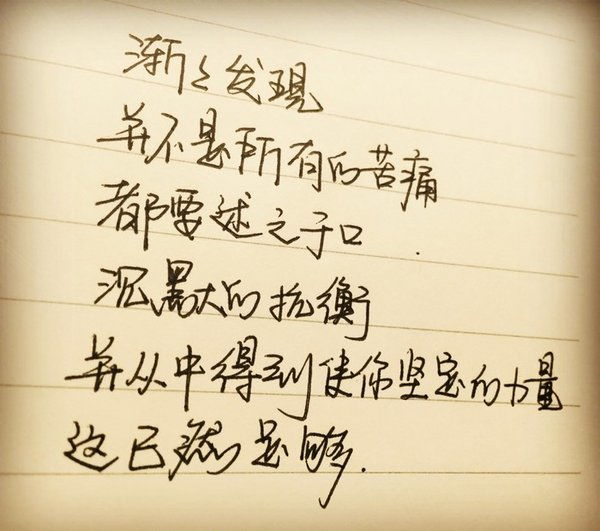 渐々发现
并不是所有的苦痛
都要述之于口.
沉默的抗衡
并从中得到使你坚定的力量
这已然足够.